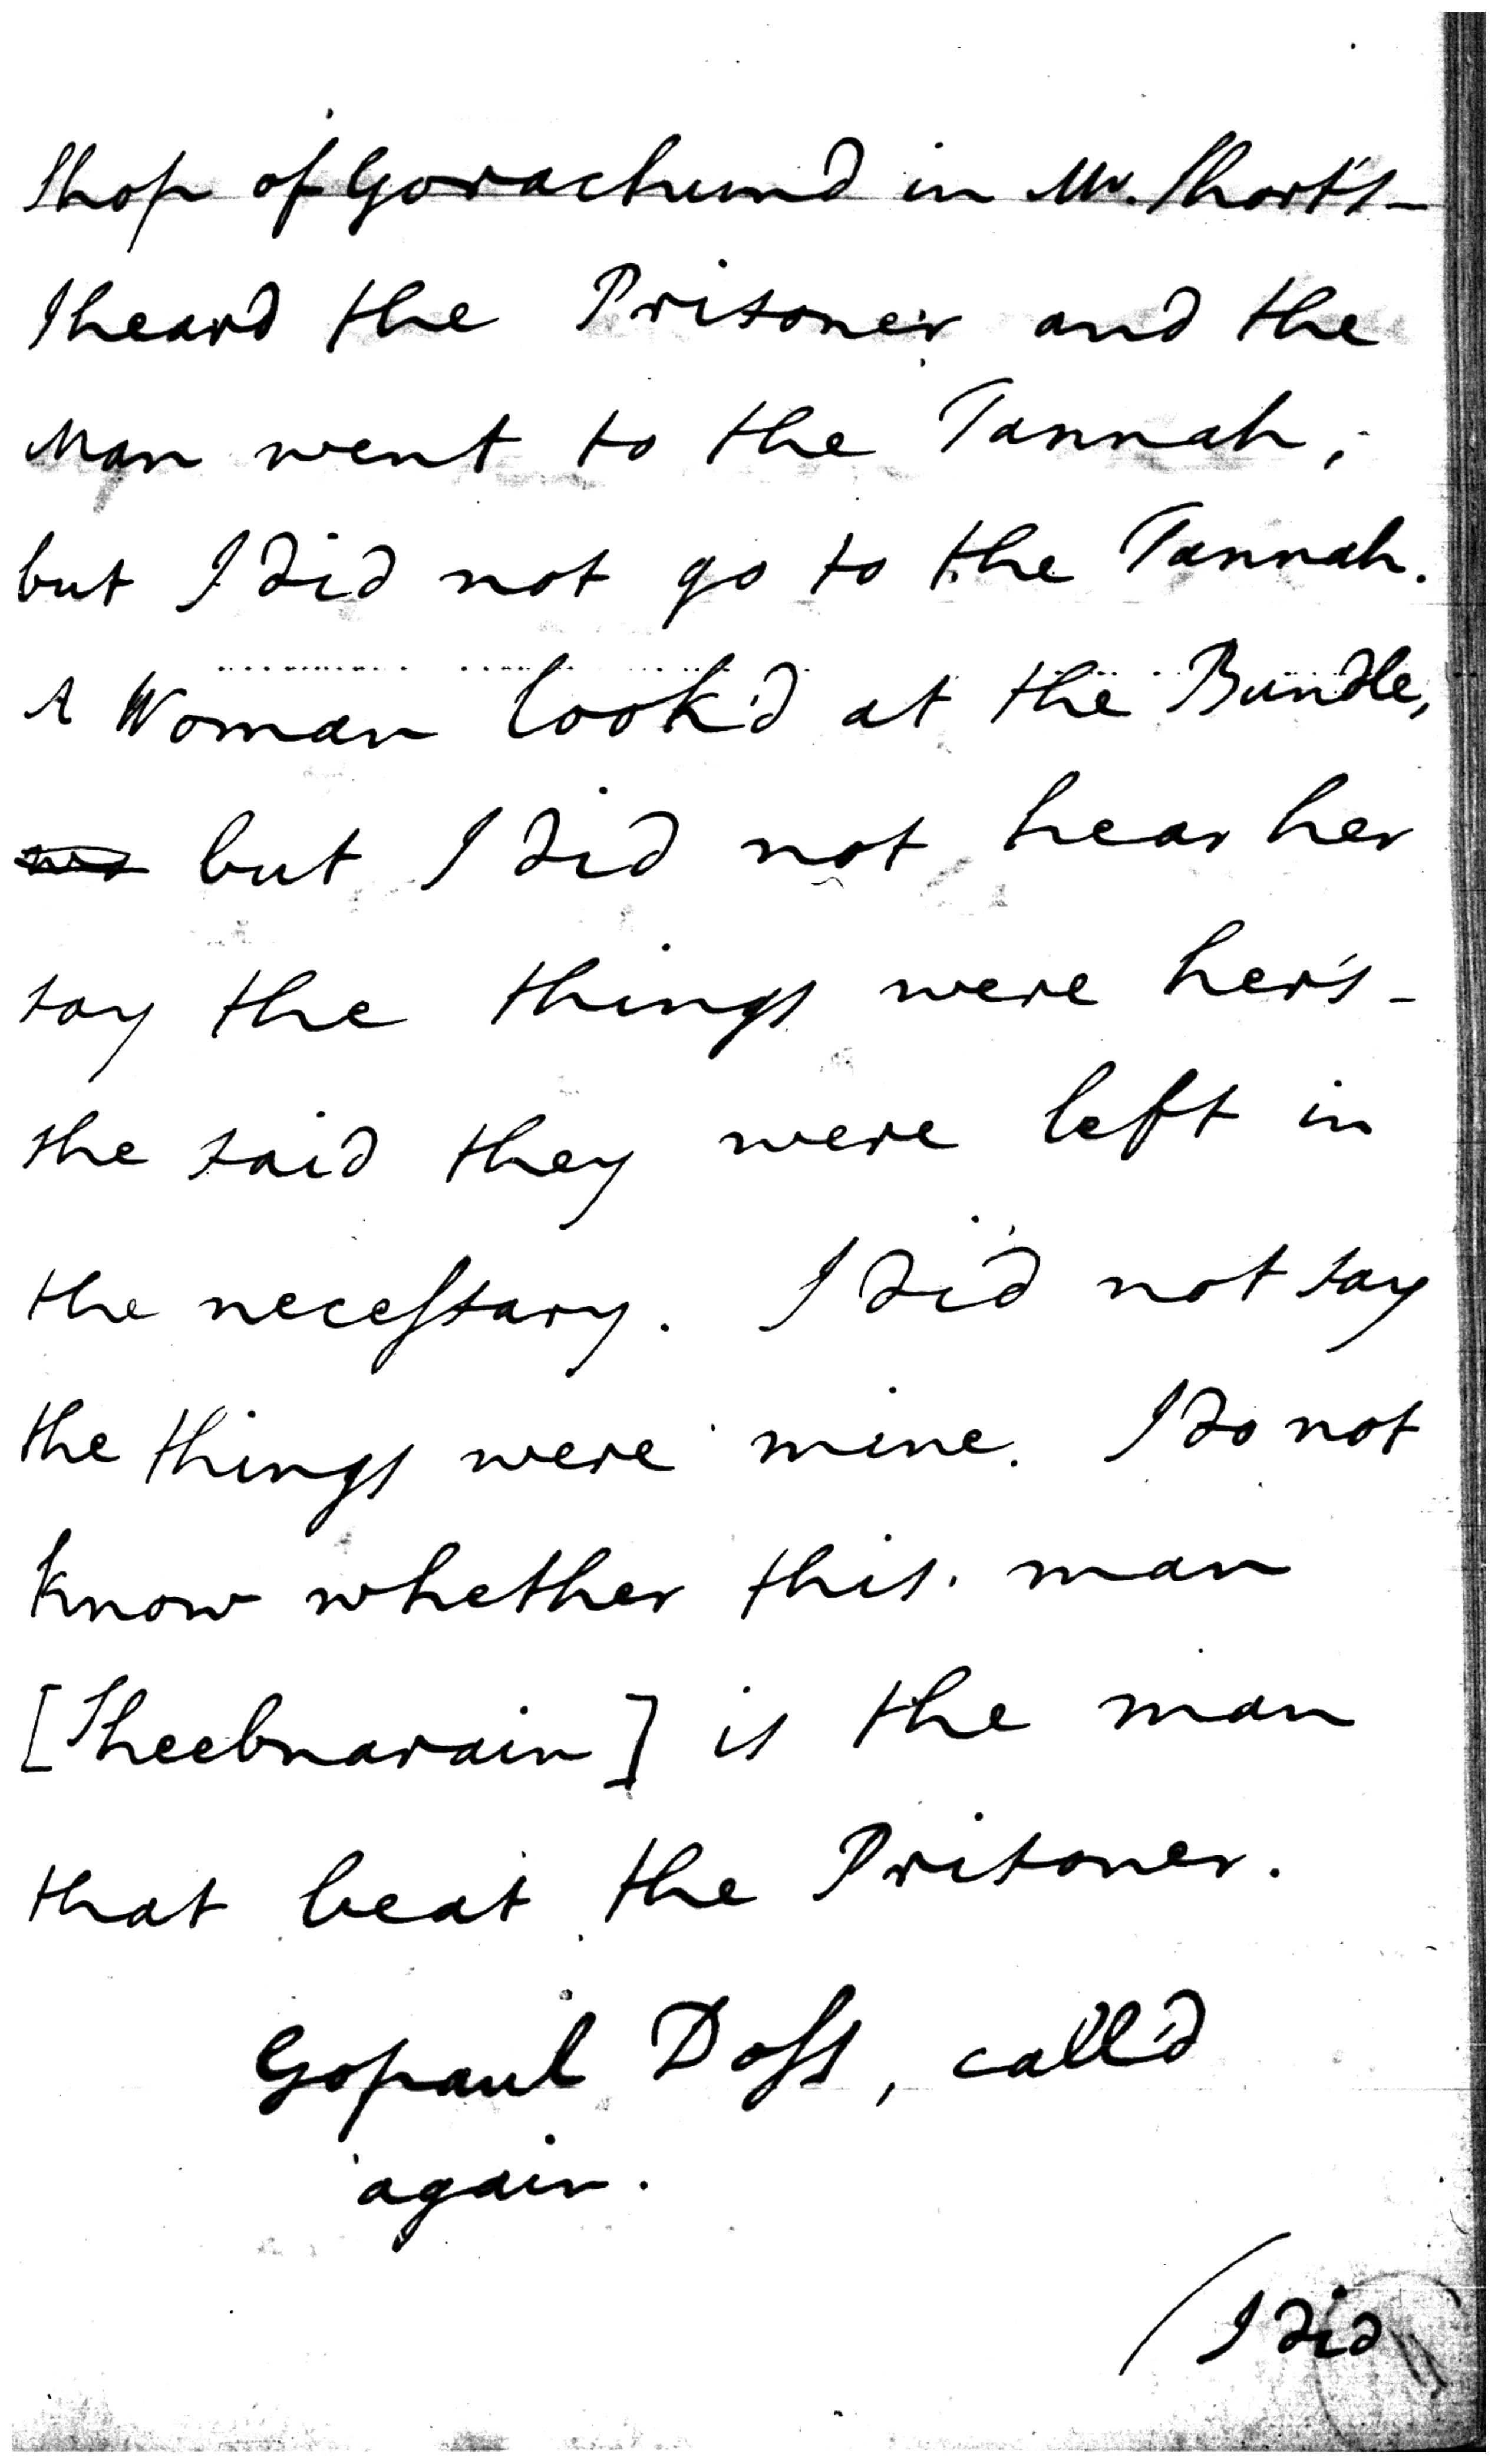 Shop of Gorachund in Mr. Short's -
I heard the Prisoner and the
Man went to the Tannah,
but I did not go to the Tannah.
A Woman look'd at the Bundle,
but I did not hear her
say the things were her's -
she said they were left in
the necessary. I did not say
the things were mine. I do not
know whether this man
[Sheebnarain] is the man
that beat the Prisoner.
Gopaul Doss, call'd
again.
(I did